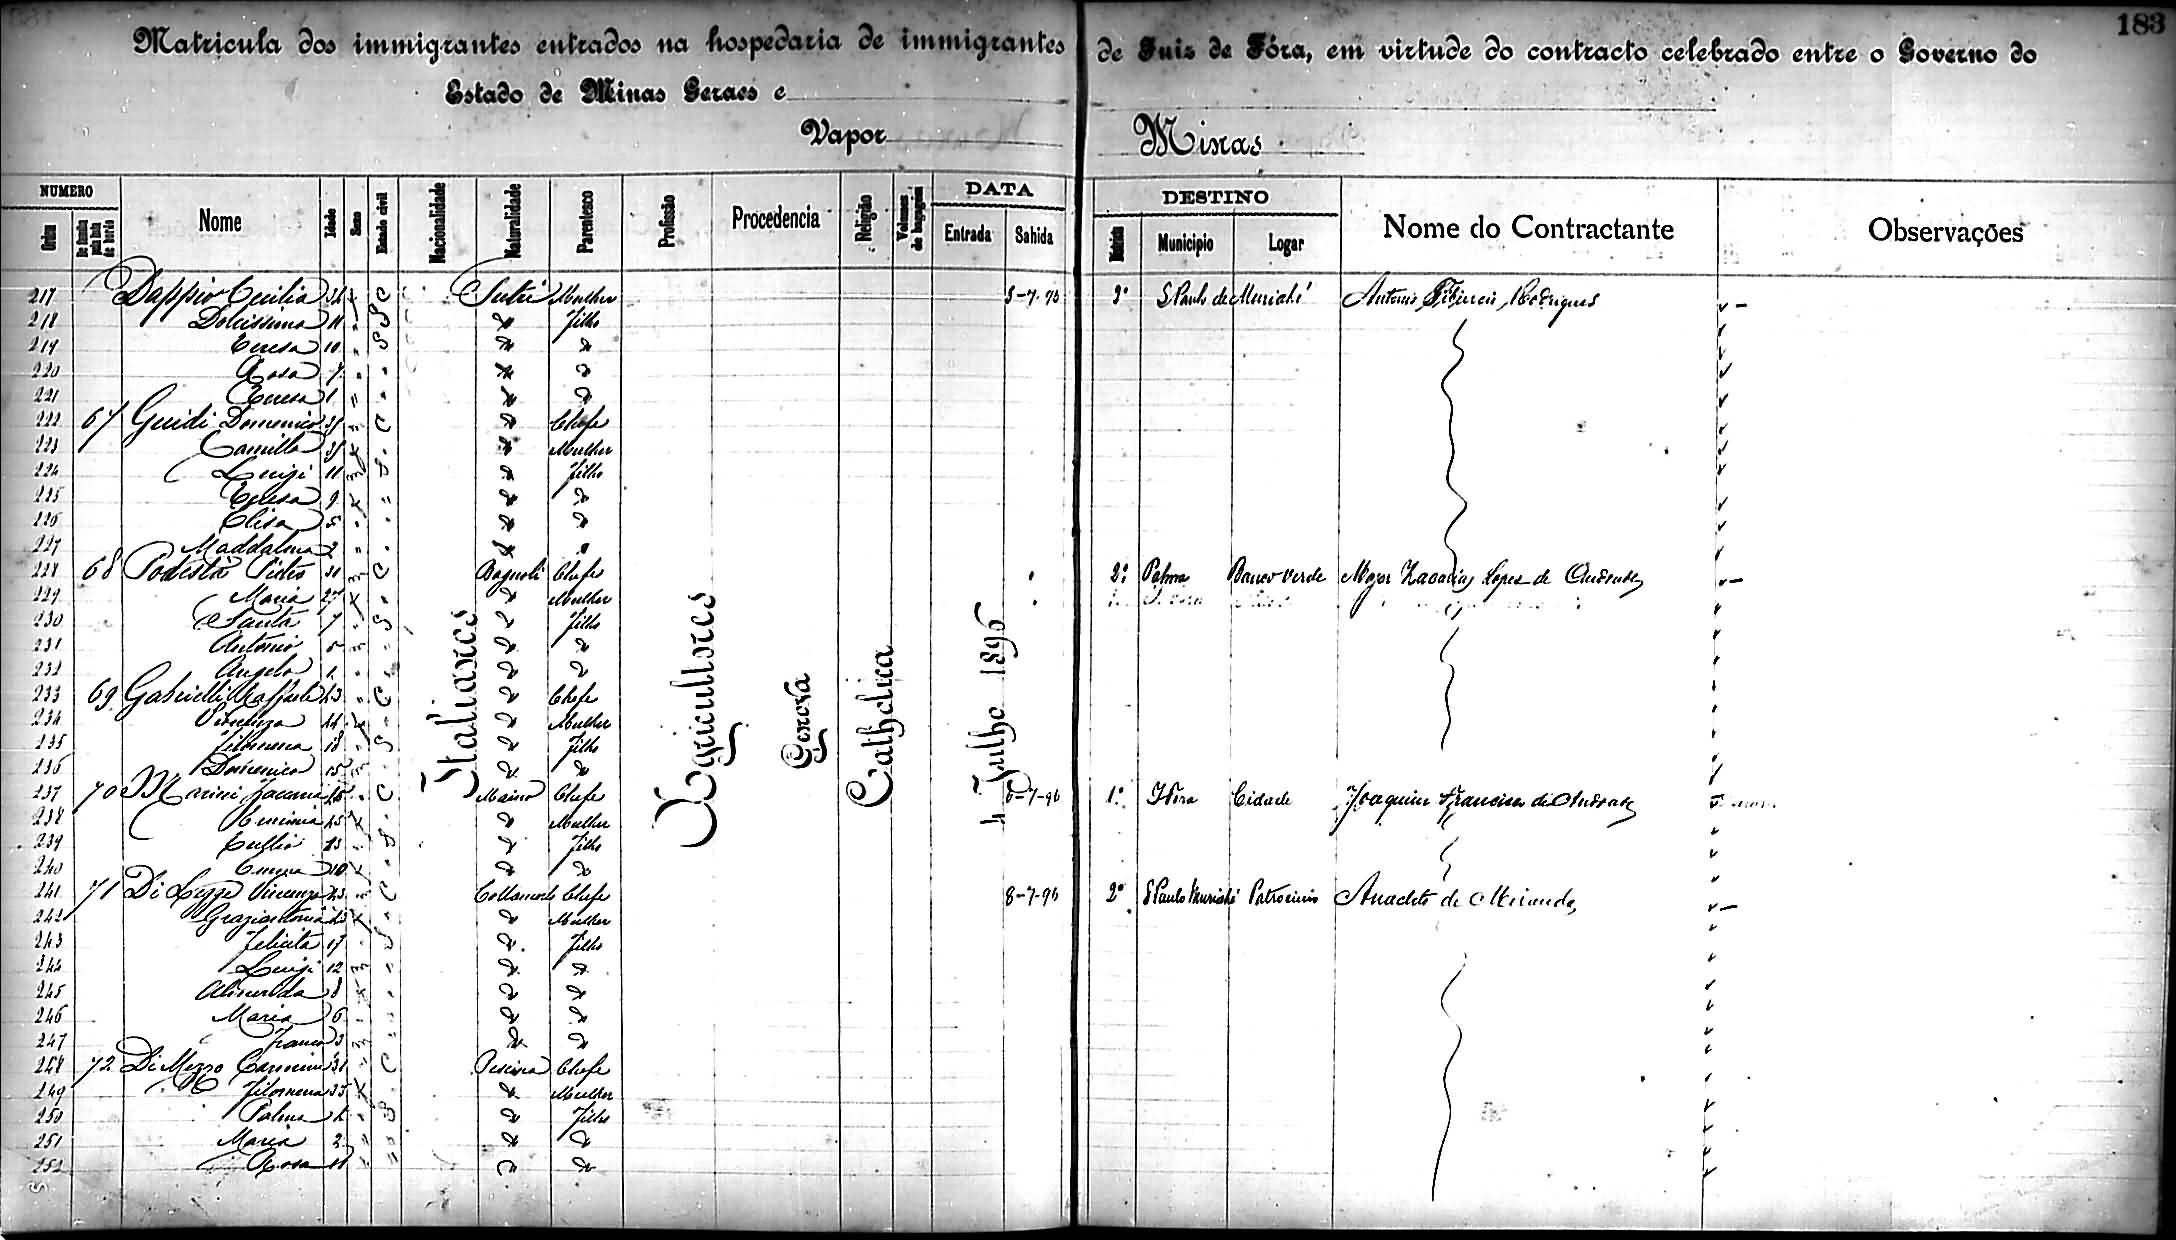 183
Matricula dos immigrantes entrados na hospedaria de immigrantes de Juiz de Fóra, em virtude do contracto celebrado entre o Governo do
Estado de Minas Geraes e
Vapor Minas
NUMERO DATA DESTINO
Ordem Nome Idade Sexo Estado civil Nacionalidade Naturalidade Parentesco Profissão Procedencia Religião Volumes de bagagem Entrada Sahida Districto Municipio Logar Nome do Contractante Observações
217 Dappio Cecilia 34 C Sutri Mulher 5-7-96 2º S Paulo de Muriahé Antonio Tiburcio Rodrigues
218 Dolcissima 11 S Filho
219 Teresa 10
220 Rosa 7
221 Teresa 1
222 67 Guidi Domenico 39 C Chefe
223 Camilla 39 Mulher
224 Luigi 11 S Filho
225 Teresa 9
226 Elisa 5
227 Maddalena 2
228 68 Podestà Pietro 31 C Bagnoli Chefe 2º Palma Banco Verde Major Zacarias Lopes de Andrade
229 Maria 27 Mulher
230 Santa 7 S Filho
231 Antonio 5
232 Angelo 1
233 69 Gabrielli Raffaele 43 C Chefe
234 Vincenza 44 Mulher
235 Filomena 18 S Filho
236 Domenico 15
237 70 Marini 45 C Chefe 6-7-96 1º J Fora Cidade Joaquim Francisco de Andrade
238 45 Mulher
239 13 S Filho
240 Emma 10
241 71 Di Vincenzo 43 C Chefe 8-7-96 2º S Paulo Muriahé Patrocinio Anacleto de Miranda
242 Graziantonia 43 Mulher
243 Felicita 17 S Filho
244 Luigi 12
245 8
246 Maria 6
247 Franco 3
248 72 Di Mezzo Carmine 31 C Pescina Chefe
249 Filomena 35 Mulher
250 Palma 4 S Filho
251 Maria 2
252 Rosa 11
Italianos
Agricultores
Genova
Catholica
4 Julho 1896